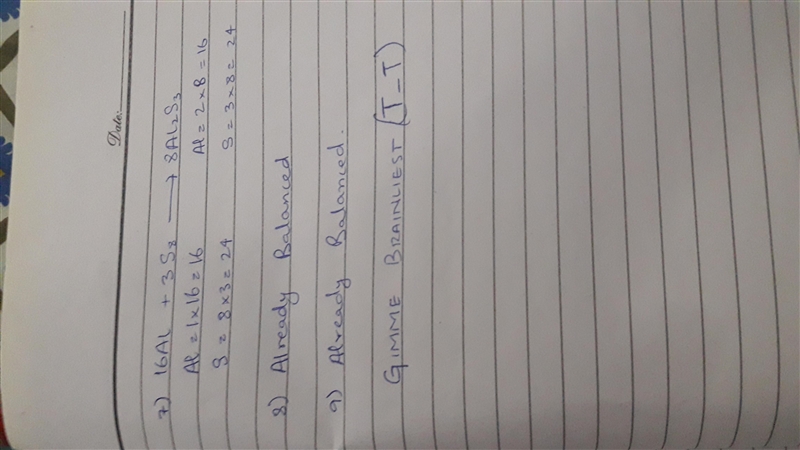 Date:
7) 16Al + 3S8 → 8Al2S3
Al = 1x16 = 16 Al = 2x8 = 16
S = 8x3 = 24 S = 3x8 = 24
8) Already Balanced
9) Already Balanced.
GIMME BRAINLIEST (T_T)